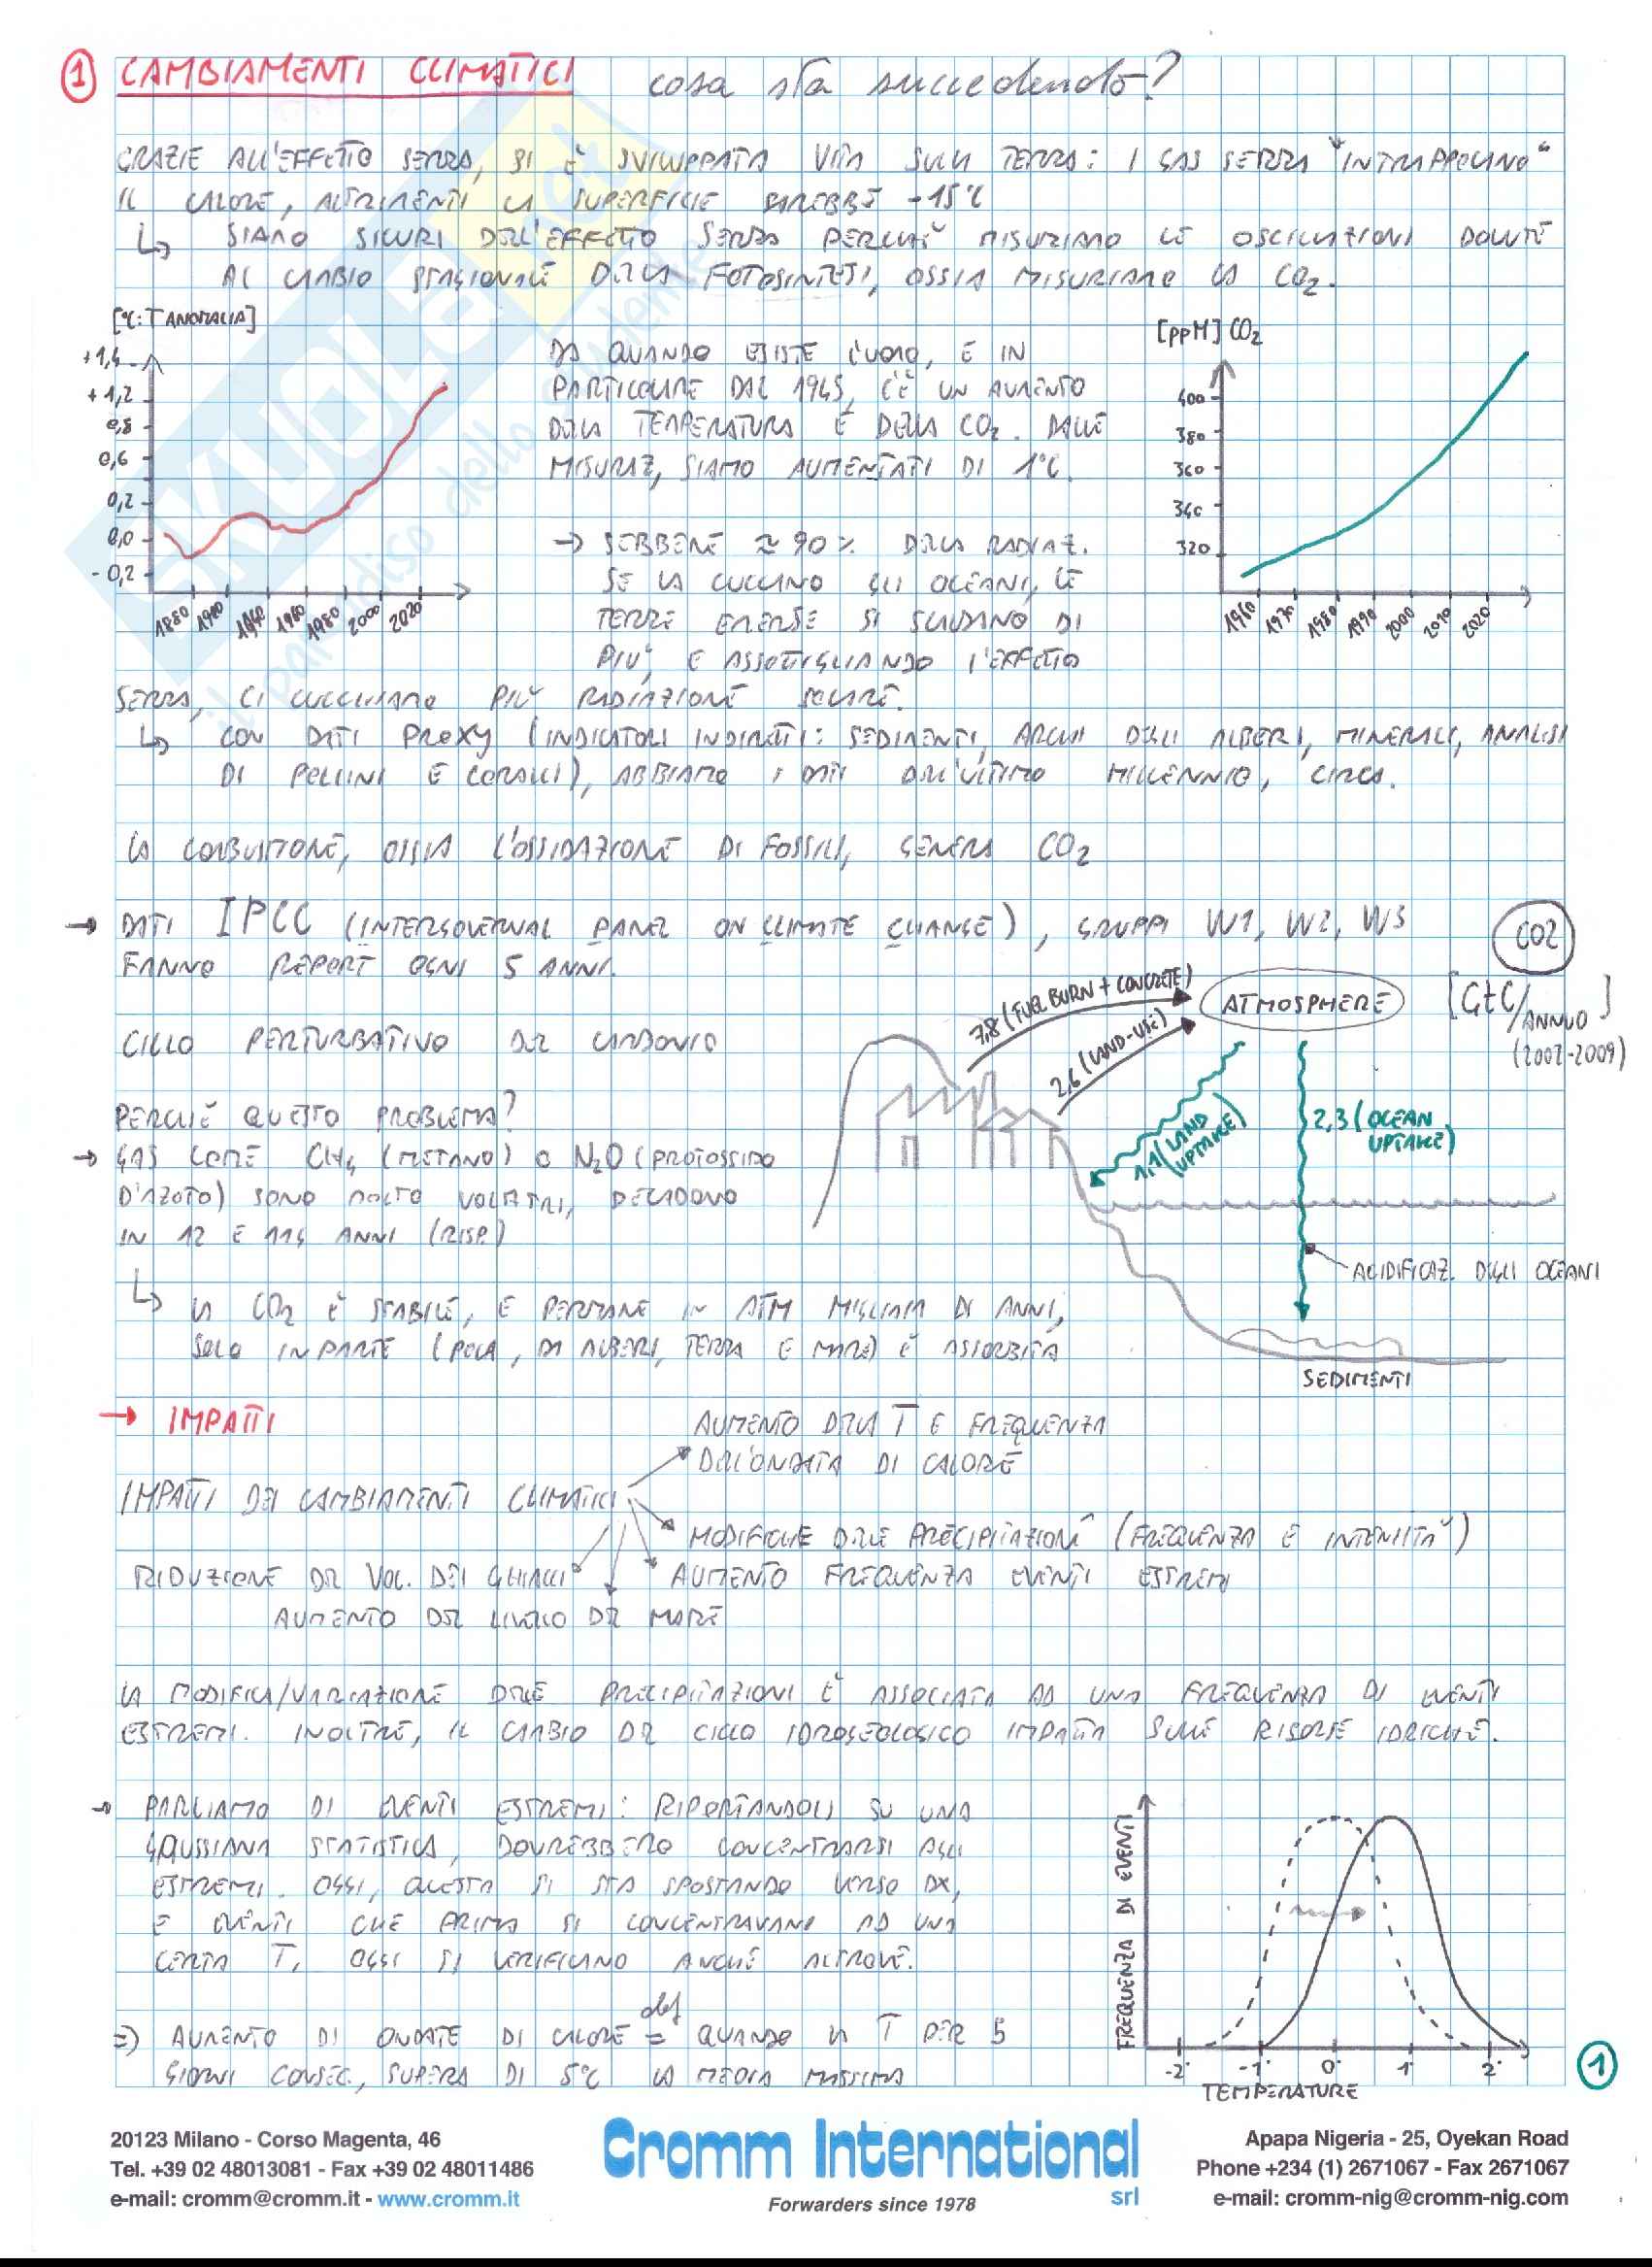 1 CAMBIAMENTI CLIMATICI cosa sta succedendo?
GRAZIE ALL'EFFETTO SERRA, SI È SVILUPPATA VITA SULLA TERRA: I GAS SERRA "INTRAPPOLANO"
IL CALORE, ALTRIMENTI LA SUPERFICIE SAREBBE -15°C
↳ SIAMO SICURI DELL'EFFETTO SERRA PERCHÉ MISURIAMO LE OSCILLAZIONI DOVUTE
AL CAMBIO STAGIONALE DELLA FOTOSINTESI, OSSIA MISURIAMO LA CO2.
[°C: T ANOMALIA]
+1,4
+1,2
0,8
0,6
0,2
0,0
-0,2
1880 1900 1940 1960 1980 2000 2020
DA QUANDO ESISTE L'UOMO, E IN
PARTICOLARE DAL 1945, C'È UN AUMENTO
DELLA TEMPERATURA E DELLA CO2. DALLE
MISURAZ, SIAMO AUMENTATI DI 1°C.
→ SEBBENE ≈ 90% DELLA RADIAZ.
SE LA CUCCANO GLI OCEANI, LE
TERRE EMERSE SI SCALDANO DI
PIÙ, E ASSOTTIGLIANDO L'EFFETTO
SERRA, CI CUCCHIAMO PIÙ RADIAZIONE SOLARE.
[ppM] CO2
400
380
360
340
320
1960 1970 1980 1990 2000 2010 2020
↳ CON DATI PROXY (INDICATORI INDIRETTI: SEDIMENTI, ARCHI DEGLI ALBERI, MINERALI, ANALISI
DI POLLINI E CORALLI), ABBIAMO I DATI DELL'ULTIMO MILLENNIO, CIRCA.
LA COMBUSTIONE, OSSIA L'OSSIDAZIONE DI FOSSILI, GENERA CO2
→ DATI IPCC (INTERGOVERNAL PANEL ON CLIMATE CHANGE), GRUPPI W1, W2, W3
FANNO REPORT OGNI 5 ANNI.
CO2
[GtC/ANNUO]
(2002-2009)
ATMOSPHERE
7,8 (FUEL BURN + CONCRETE)
2,6 (LAND-USE)
1,1 (LAND UPTAKE)
2,3 (OCEAN
UPTAKE)
ACIDIFICAZ. DEGLI OCEANI
SEDIMENTI
CICLO PERTURBATIVO DEL CARBONIO
PERCHÉ QUESTO PROBLEMA?
→ GAS COME CH4 (METANO) O N2O (PROTOSSIDO
D'AZOTO) SONO MOLTO VOLATILI, DECADONO
IN 12 E 114 ANNI (RISP.)
↳ LA CO2 È STABILE, E PERMANE IN ATM MIGLIAIA DI ANNI,
SOLO IN PARTE (POCA, DA ALBERI, TERRA E MARE) È ASSORBITA
→ IMPATTI
AUMENTO DELLA T E FREQUENZA
DELL'ONDATA DI CALORE
IMPATTI DEI CAMBIAMENTI CLIMATICI
MODIFICHE DELLE PRECIPITAZIONI (FREQUENZA E INTENSITÀ)
RIDUZIONE DEL VOL. DEI GHIACCI
AUMENTO FREQUENZA EVENTI ESTREMI
AUMENTO DEL LIVELLO DEL MARE
LA MODIFICA/VARIAZIONE DELLE PRECIPITAZIONI È ASSOCIATA AD UNA FREQUENZA DI EVENTI
ESTREMI. INOLTRE, IL CAMBIO DEL CICLO IDROGEOLOGICO IMPATTA SULLE RISORSE IDRICHE.
→ PARLIAMO DI EVENTI ESTREMI: RIPORTANDOLI SU UNA
GAUSSIANA STATISTICA, DOVREBBERO CONCENTRARSI AGLI
ESTREMI. OGGI, QUESTA SI STA SPOSTANDO VERSO DX,
E EVENTI CHE PRIMA SI CONCENTRAVANO AD UNA
CERTA T, OGGI SI VERIFICANO ANCHE ALTROVE.
⇒) AUMENTO DI ONDATE DI CALORE def = QUANDO LA T PER 5
GIORNI CONSEC, SUPERA DI 5°C LA MEDIA MASSIMA
FREQUENZA DI EVENTI
-2 -1 0 1 2
TEMPERATURE
1
SKUOLA.net
il paradiso dello studente
20123 Milano - Corso Magenta, 46
Tel. +39 02 48013081 - Fax +39 02 48011486
e-mail: cromm@cromm.it - www.cromm.it
Cromm International
srl
Forwarders since 1978
Apapa Nigeria - 25, Oyekan Road
Phone +234 (1) 2671067 - Fax 2671067
e-mail: cromm-nig@cromm-nig.com